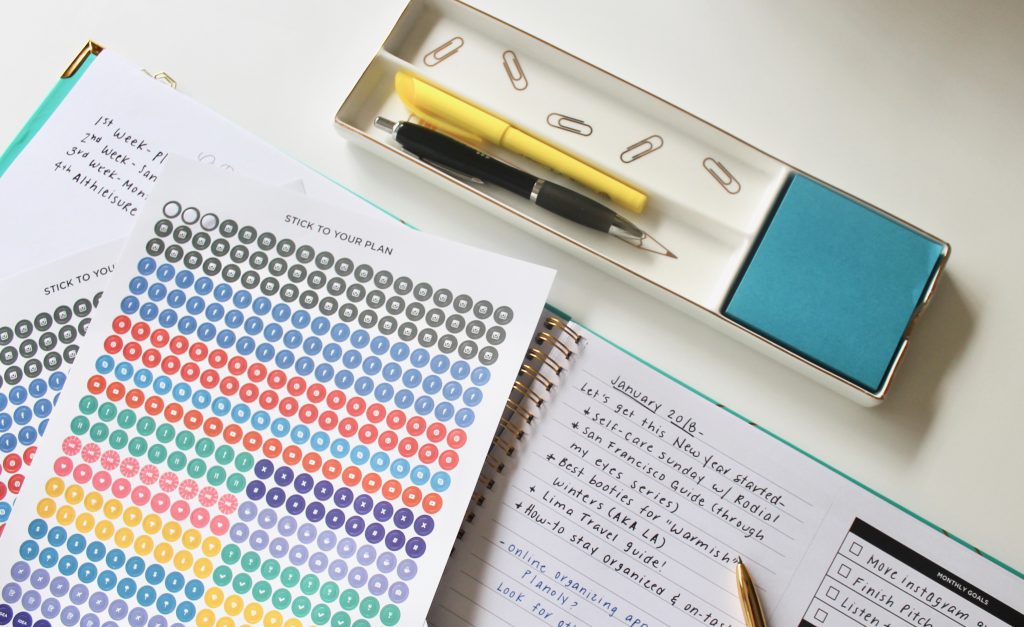 1st Week- Pl
2nd Week- San
3rd Week- Mon
4th Athleisure
STICK TO YOUR PLAN
STICK TO YOU
January 2018
Let's get this New Year started
* Self-Care Sunday w/ Rodial
* San Francisco Guide (through
my eyes series)
* Best booties for "Warmish"
winters (AKA LA)
* Lima Travel guide!
* How-to stay organized & on-task
- online organizing app
planoly?
Look for oth
MONTHLY GOALS
More instagram
Finish Pitch
Listen t